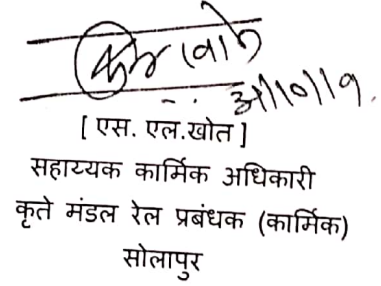 [ एस. एल.खोत ]
सहाय्यक कार्मिक अधिकारी
कृते मंडल रेल प्रबंधक (कार्मिक)
सोलापुर